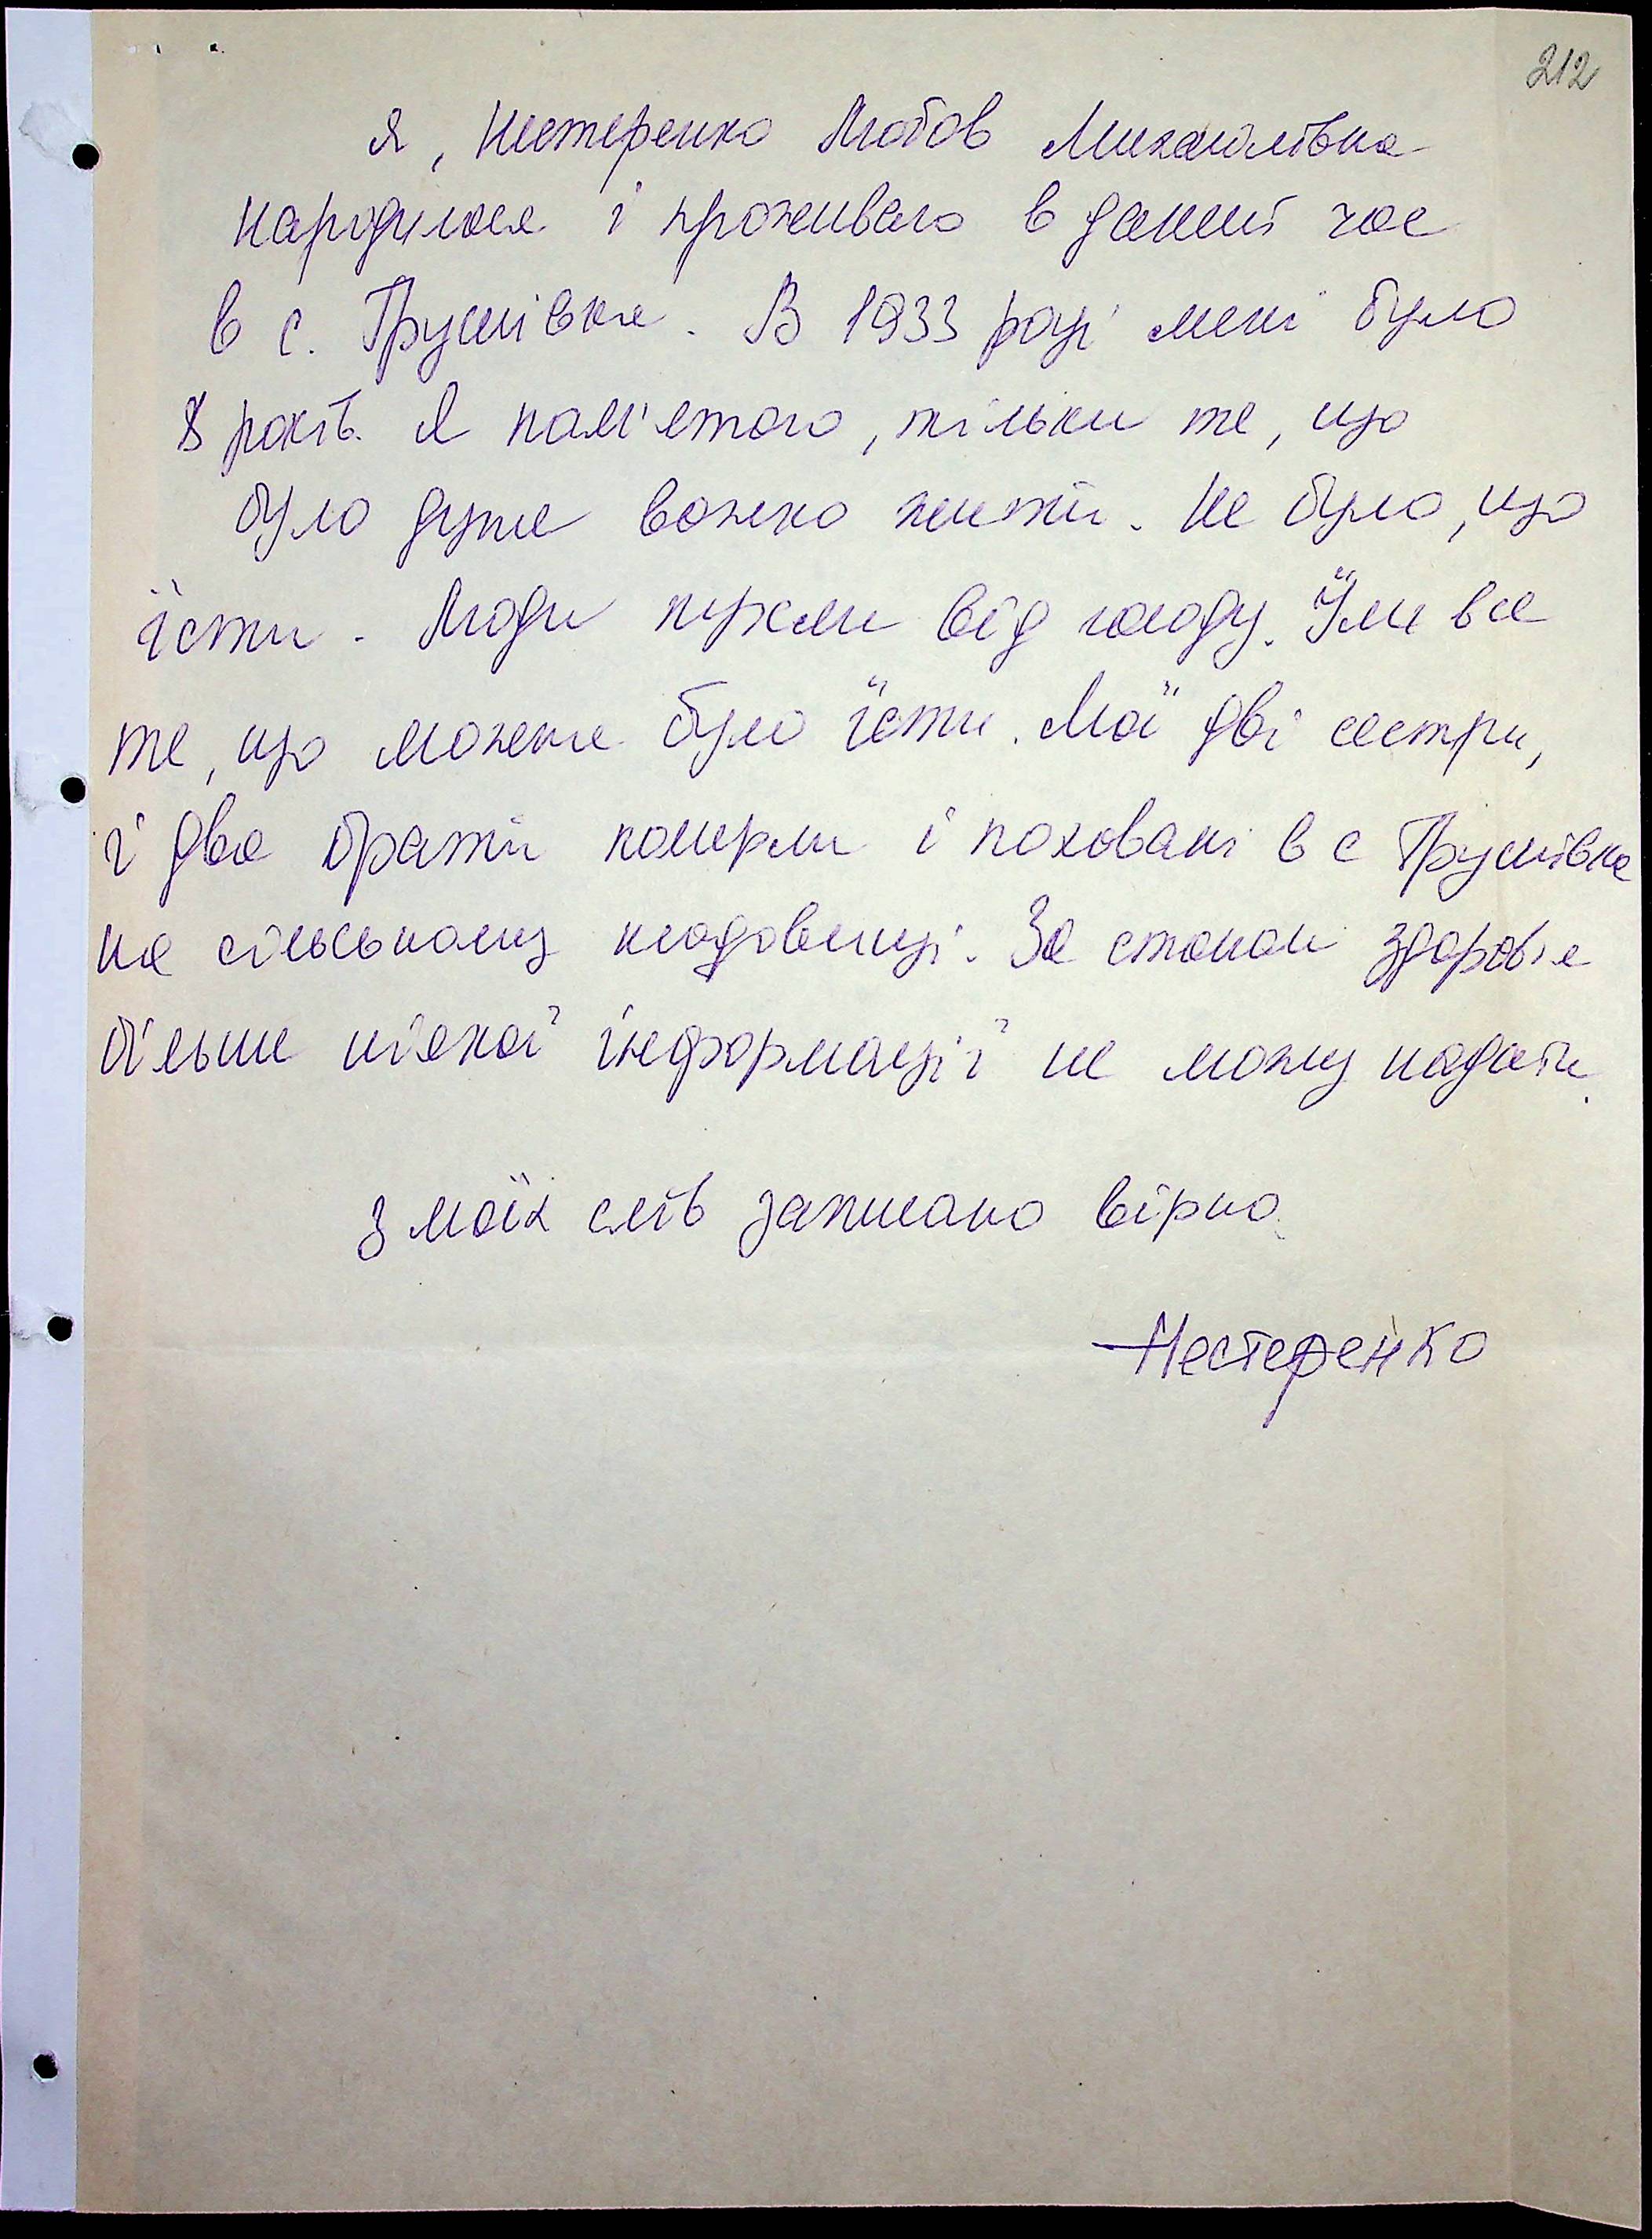 212
Я, Нестеренко Любов Михайлівна
народилася і проживаю в даний час
в с. Грушівка. В 1933 році мені було
8 років. Я пам'ятаю, тільки те, що
було дуже важко жити. Не було, що
їсти. Люди пухли від голоду. Їли все
те, що можна було їсти. Мої дві сестри,
і два брати померли і поховані в с Грушівка
на сільському кладовищі. За станом здоров'я
більше ніякої інформації не можу надати.
З моїх слів записано вірно.
Нестеренко